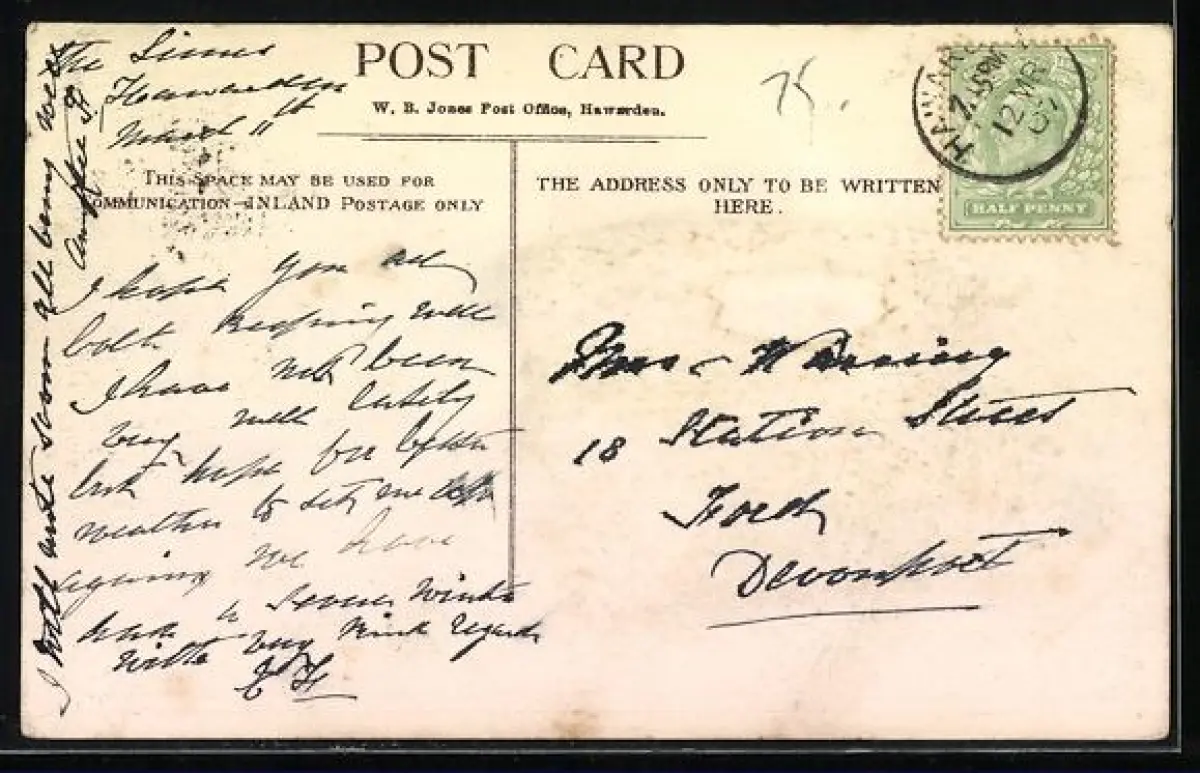 The Limes
Hawarden
March 11th
POST CARD
W. B. Jones Post Office, Hawarden.
75
HAWARD
7.15PM
12 MR
07
HALF PENNY
THIS SPACE MAY BE USED FOR
COMMUNICATION—INLAND POSTAGE ONLY
THE ADDRESS ONLY TO BE WRITTEN
HERE.
I hope you are
both keeping well
I have not been
very well lately
but hope for better
weather to set me
againg we have
had a severe winter
with very kind regards
E H
I will write soon all being well
Mrs
18 Station Street
Ford
Devonport